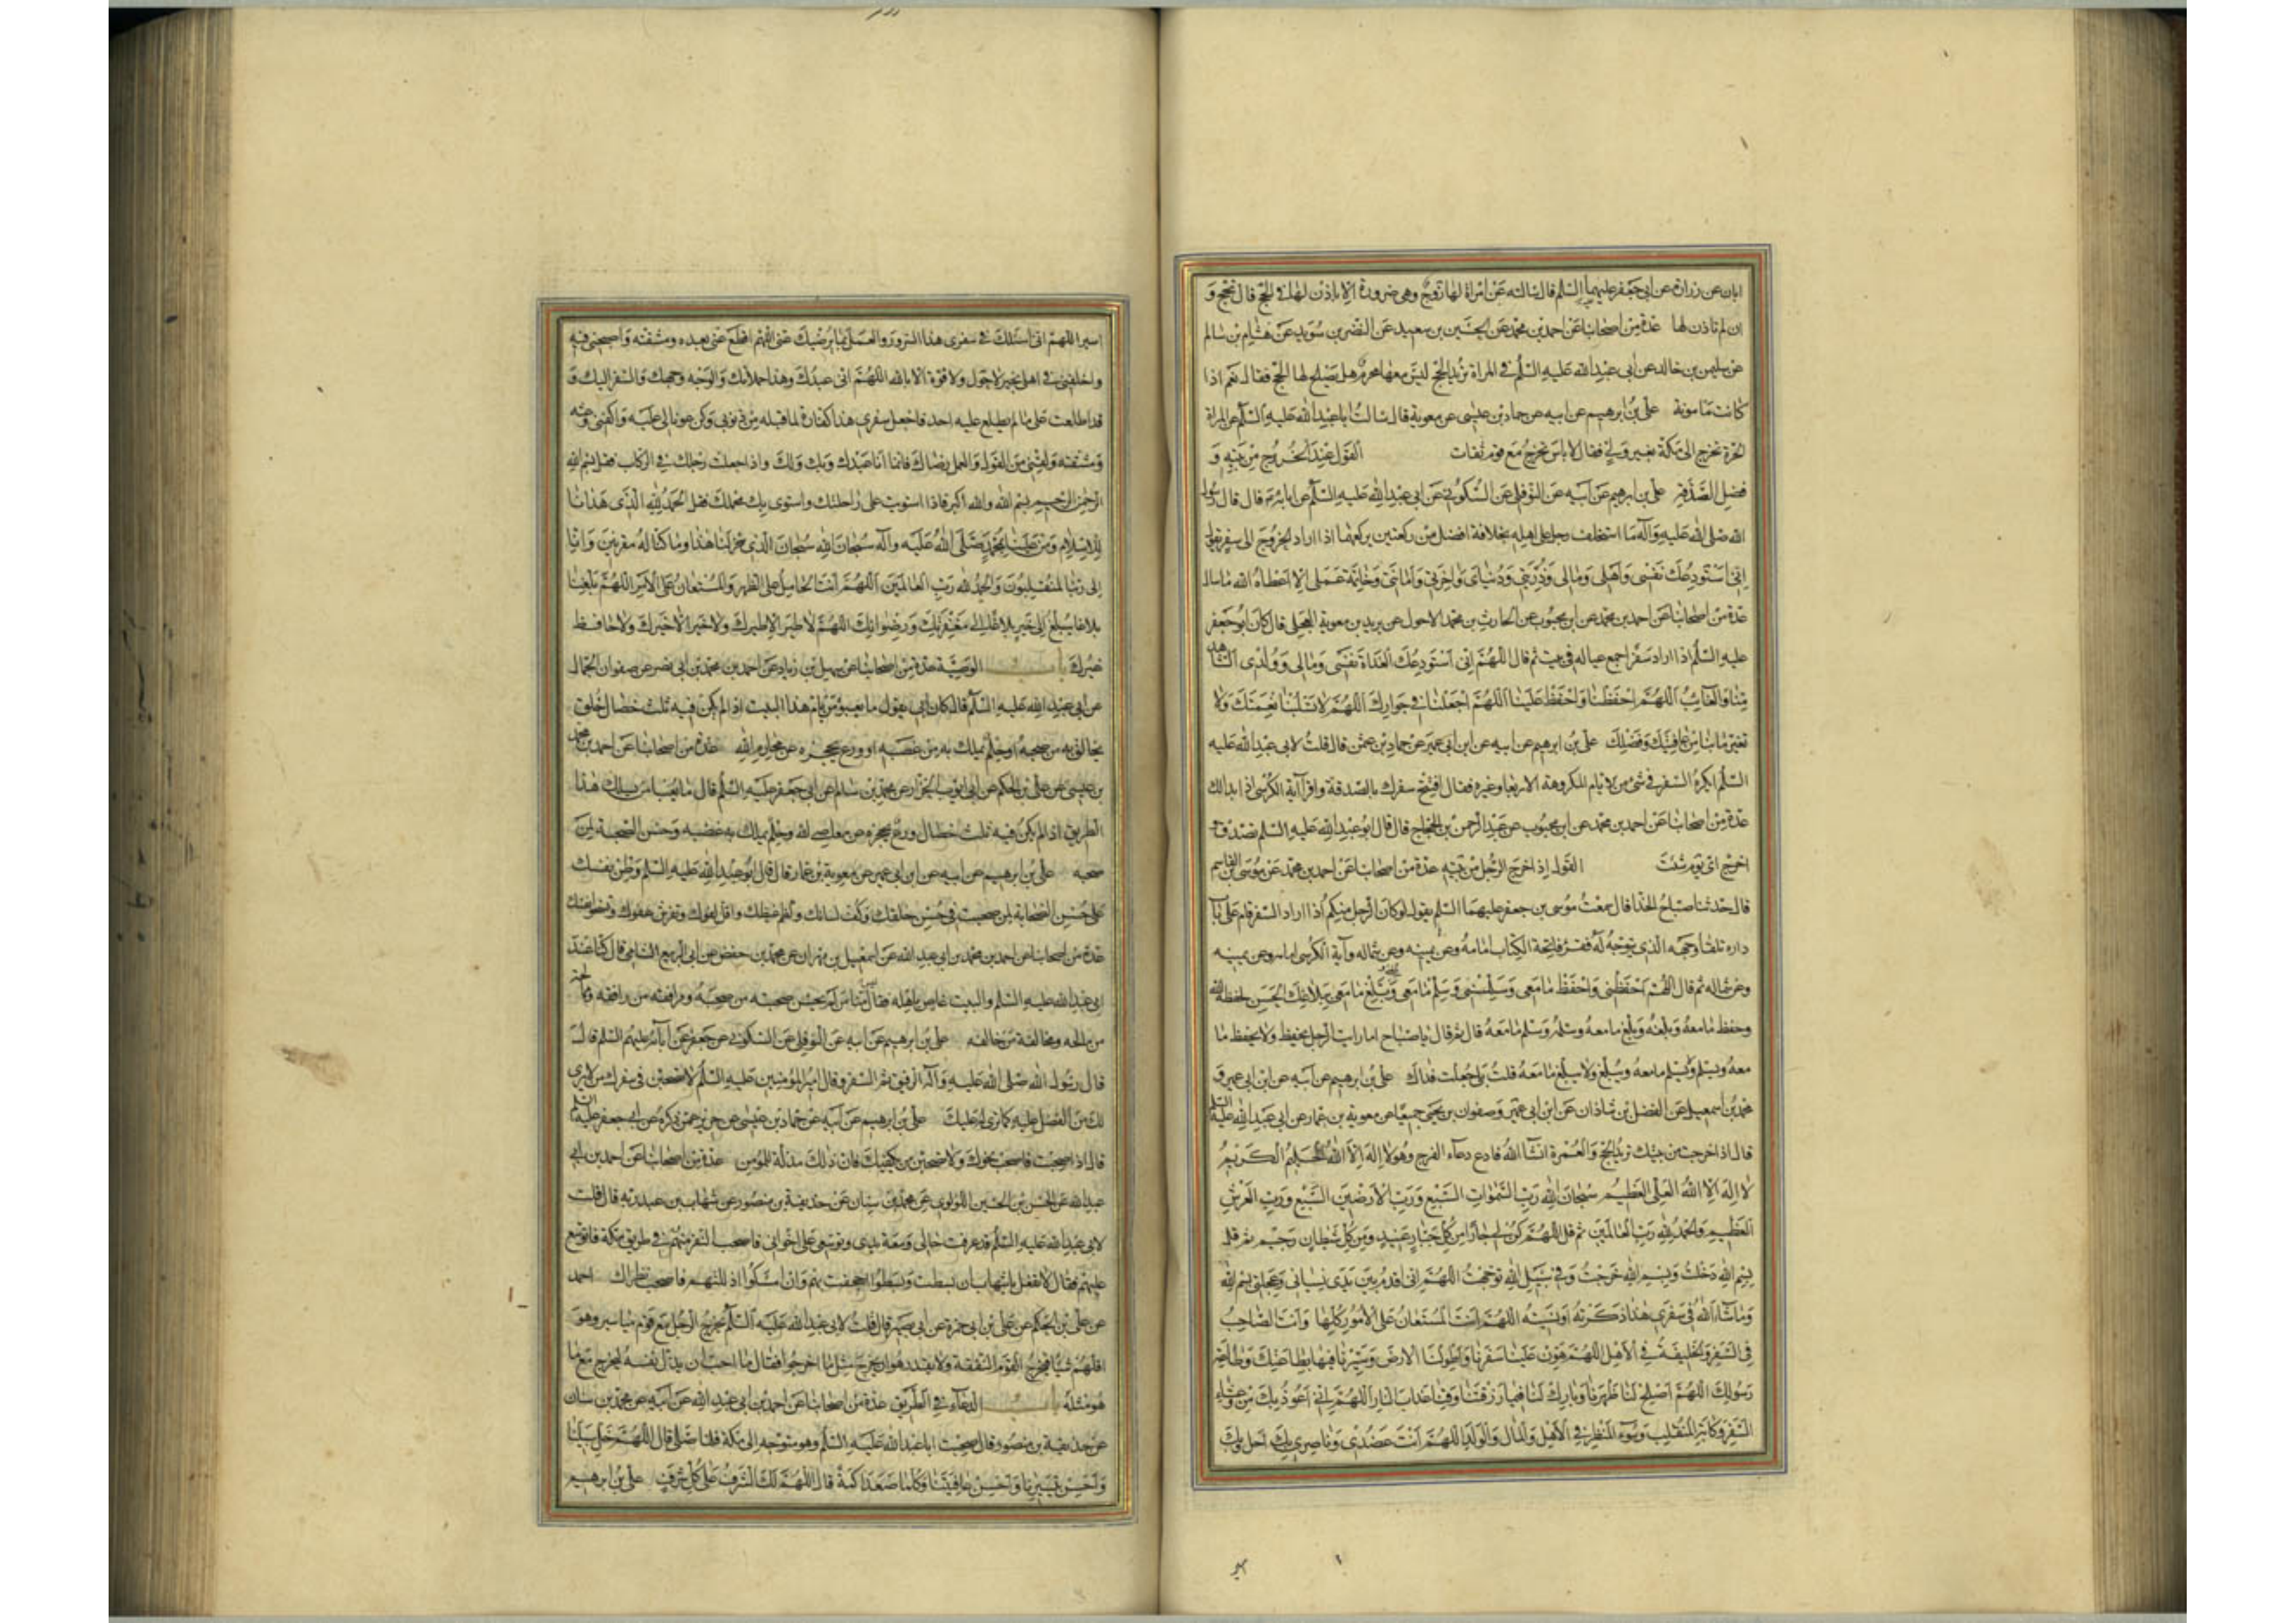 ابان عن زرارة عن ابى جعفر عليهما السلم قال سالته عن امراة لها زوج وهى ضرورة الا باذن لها فى الحج قال تحج و
ان لم ياذن لها عدة من اصحابنا عن احمد بن محمد عن الحسين بن سعيد عن النضر بن سويد عن هشام بن سالم
عن سليمن بن خالد عن ابى عبد الله عليه السلم فى المراة تريد الحج ليس معها محرم هل يصلح لها الحج فقال نعم اذا
كانت مامونة على بن ابرهيم عن ابيه عن حماد بن عيسى عن معوية قال سالت ابا عبد الله عليه السلم عن المراة
الحرة تخرج الى مكة بغير ولى فقال لا باس تخرج مع قوم ثقات القول عند الخروج من بيته و
فضل الصدقة على بن ابرهيم عن ابيه عن النوفلى عن السكونى عن ابى عبد الله عليه السلم عن ابائه قال قال رسول
الله صلى الله عليه وآله ما استخلف رجل على اهله بخلافة افضل من ركعتين يركعهما اذا اراد الخروج الى سفر يقول
انى استودعك نفسى واهلى ومالى وذريتى ودنياى واخرتى وامانتى وخاتمة عملى الا اعطاه الله ما سال
عدة من اصحابنا عن احمد بن محمد عن ابن محبوب عن الحارث بن محمد الاحول عن بريد بن معوية العجلى قال كان ابو جعفر
عليه السلم اذا اراد سفرا جمع عياله فى بيت ثم قال اللهم انى استودعك الغداة نفسى ومالى وولدى الشاهد
منا والغائب اللهم احفظنا واحفظ علينا اللهم اجعلنا فى جوارك اللهم لا تسلبنا نعمتك ولا
تغير ما بنا من عافيتك وفضلك على بن ابرهيم عن ابيه عن ابن ابى عمير عن حماد بن عثمن قال قلت لابى عبد الله عليه
السلم ايكره السفر فى شئ من الايام المكروهة الاربعا وغيره فقال افتتح سفرك بالصدقة واقرا آية الكرسى اذا بدا لك
عدة من اصحابنا عن احمد بن محمد عن ابن محبوب عن عبد الرحمن بن الحجاج قال قال ابو عبد الله عليه السلم تصدق و
اخرج اى يوم شئت القول اذا خرج الرجل من بيته عدة من اصحابنا عن احمد بن محمد عن موسى بن القاسم
قال حدثنا صباح الحذا قال سمعت موسى بن جعفر عليهما السلم يقول لو كان الرجل منكم اذا اراد السفر قام على باب
داره تلقا وجهه الذى يتوجه له فقرء فاتحة الكتاب امامه وعن يمينه وعن شماله وآية الكرسى امامه وعن يمينه
وعن شماله ثم قال اللهم احفظنى واحفظ ما معى وسلمنى وسلم ما معى وبلغ ما معى ببلاغك الحسن لحفظه الله
وحفظ ما معه وبلغه وبلغ ما معه وسلمه وسلم ما معه قال ثم قال يا صباح اما رايت الرجل يحفظ ولا يحفظ ما
معه ويسلم ولا يسلم ما معه ويبلغ ولا يبلغ ما معه قلت بلى جعلت فداك على بن ابرهيم عن ابيه عن ابن ابى عمير و
محمد بن اسمعيل عن الفضل بن شاذان عن ابن ابى عمير وصفوان بن يحيى جميعا عن معوية بن عمار عن ابى عبد الله عليه السلم
قال اذا خرجت من بيتك تريد الحج والعمرة انشا الله فادع دعاء الفرج وهو لا اله الا الله الحليم الكريم
لا اله الا الله العلى العظيم سبحان الله رب السموات السبع ورب الارضين السبع ورب العرش
العظيم والحمد لله رب العالمين ثم قل اللهم كن لى جارا من كل جبار عنيد ومن كل شيطان رجيم ثم قل
بسم الله دخلت وبسم الله خرجت وفى سبيل الله توجهت اللهم انى اقدم بين يدى نسيانى وعجلتى بسم الله
وما شاء الله فى سفرى هذا ذكرته او نسيته اللهم انت المستعان على الامور كلها وانت الصاحب
فى السفر والخليفة فى الاهل اللهم هون علينا سفرنا واطو لنا الارض وسيرنا فيها بطاعتك وطاعة
رسولك اللهم اصلح لنا ظهرنا وبارك لنا فيما رزقتنا وقنا عذاب النار اللهم انى اعوذ بك من وعثاء
السفر وكابة المنقلب وسوء المنظر فى الاهل والمال والولد اللهم انت عضدى وناصرى بك احل وبك
اسير اللهم انى اسئلك فى سفرى هذا السرور والعمل بما يرضيك عنى اللهم اقطع عنى بعده ومشقته واصحبنى فيه
واخلفنى فى اهلى بخير لا حول ولا قوة الا بالله اللهم انى عبدك وهذا حملانك والوجه وجهك والسفر اليك و
قد اطلعت على ما لم يطلع عليه احد فاجعل سفرى هذا كفارة لما قبله من ذنوبى وكن عونا لى عليه واكفنى وعثه
ومشقته ولقنى من القول والعمل رضاك فانما انا عبدك وبك ولك واذا جعلت رجلك فى الركاب فقل بسم الله
الرحمن الرحيم بسم الله والله اكبر فاذا استويت على راحلتك واستوى بك محملك فقل الحمد لله الذى هدانا
للاسلام ومن علينا بمحمد صلى الله عليه وآله سبحان الله سبحان الذى سخر لنا هذا وما كنا له مقرنين وانا
الى ربنا لمنقلبون والحمد لله رب العالمين اللهم انت الحامل على الظهر والمستعان على الامر اللهم بلغنا
بلاغا يبلغ الى خير بلاغا يبلغ الى مغفرتك ورضوانك اللهم لا طير الا طيرك ولا خير الا خيرك ولا حافظ
غيرك باب الوصية عدة من اصحابنا عن سهل بن زياد عن احمد بن محمد بن ابى نصر عن صفوان الجمال
عن ابى عبد الله عليه السلم قال كان ابى يقول ما يعبؤ من يام هذا البيت اذا لم يكن فيه ثلث خصال خلق
يخالق به من صحبه او حلم يملك به من غضبه او ورع يحجزه عن محارم الله عدة من اصحابنا عن احمد بن محمد
بن عيسى عن على بن الحكم عن ابى ايوب الخزاز عن محمد بن مسلم عن ابى جعفر عليه السلم قال ما يعبا من يسلك هذا
الطريق اذا لم يكن فيه ثلث خصال ورع يحجزه عن معاصى الله وحلم يملك به غضبه وحسن الصحبة لمن
صحبه على بن ابرهيم عن ابيه عن ابن ابى عمير عن معوية بن عمار قال قال ابو عبد الله عليه السلم وطن نفسك
على حسن الصحابة لمن صحبت فى حسن خلقك وكف لسانك واكظم غيظك واقل لغوك وتفرش عفوك وتسخو نفسك
عدة من اصحابنا عن احمد بن محمد بن ابى عبد الله عن اسمعيل بن مهران عن محمد بن حفص عن ابى الربيع الشامى قال كنا عند
ابى عبد الله عليه السلم والبيت غاص باهله فقال ليس منا من لم يحسن صحبته من صحبه ومرافقة من رافقه وممالحة
من مالحه ومخالقة من خالقه على بن ابرهيم عن ابيه عن النوفلى عن السكونى عن جعفر عن آبائه عليهم السلم قال
قال رسول الله صلى الله عليه وآله الرفيق ثم السفر وقال امير المؤمنين عليه السلم لا تصحبن فى سفرك من لا يرى
لك من الفضل عليه كما ترى له عليك على بن ابرهيم عن ابيه عن حماد بن عيسى عن حريز عمن ذكره عن ابى جعفر عليه السلم
قال اذا صحبت فاصحب نحوك ولا تصحبن من يكفيك فان ذلك مذلة للمؤمن عدة من اصحابنا عن احمد بن ابى
عبد الله عن الحسن بن الحسين اللؤلوى عن محمد بن سنان عن حذيفة بن منصور عن شهاب بن عبد ربه قال قلت
لابى عبد الله عليه السلم قد عرفت حالى وسعة يدى وتوسعى على اخوانى فاصحب النفر منهم فى طريق مكة فاتوسع
عليهم فقال لا تفعل يا شهاب ان بسطت وبسطوا اجحفت بهم وان امسكوا اذللتهم فاصحب نظراك احمد
عن على بن الحكم عن على بن ابى حمزة عن ابى بصير قال قلت لابى عبد الله عليه السلم يخرج الرجل مع قوم مياسير وهو
اقلهم شيئا فيخرج القوم النفقة ولا يقدر هو ان يخرج مثل ما اخرجوا فقال ما احب ان يذل نفسه ليخرج مع من
هو مثله باب الدعاء فى الطريق عدة من اصحابنا عن احمد بن ابى عبد الله عن ابيه عن محمد بن سنان
عن حذيفة بن منصور قال صحبت ابا عبد الله عليه السلم وهو متوجه الى مكة فلما صلى قال اللهم خل سبيلنا
واحسن تسييرنا واحسن عافيتنا وكلما صعد اكمة قال اللهم لك الشرف على كل شرف على بن ابرهيم